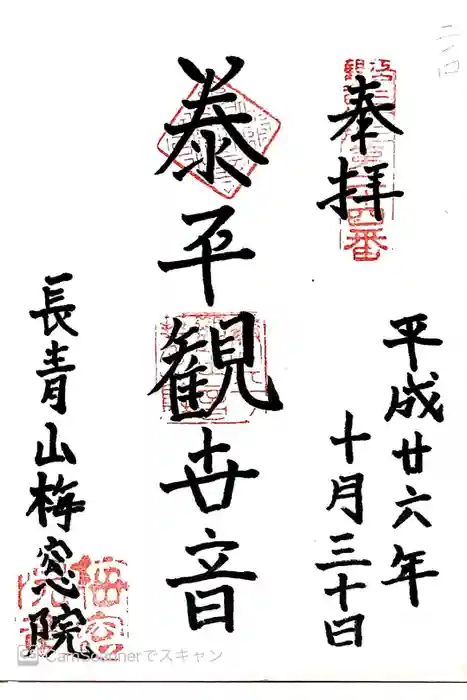 奉拝
平成廿六年
十月三十日
泰平観世音
長青山梅窓院
CamScannerでスキャン